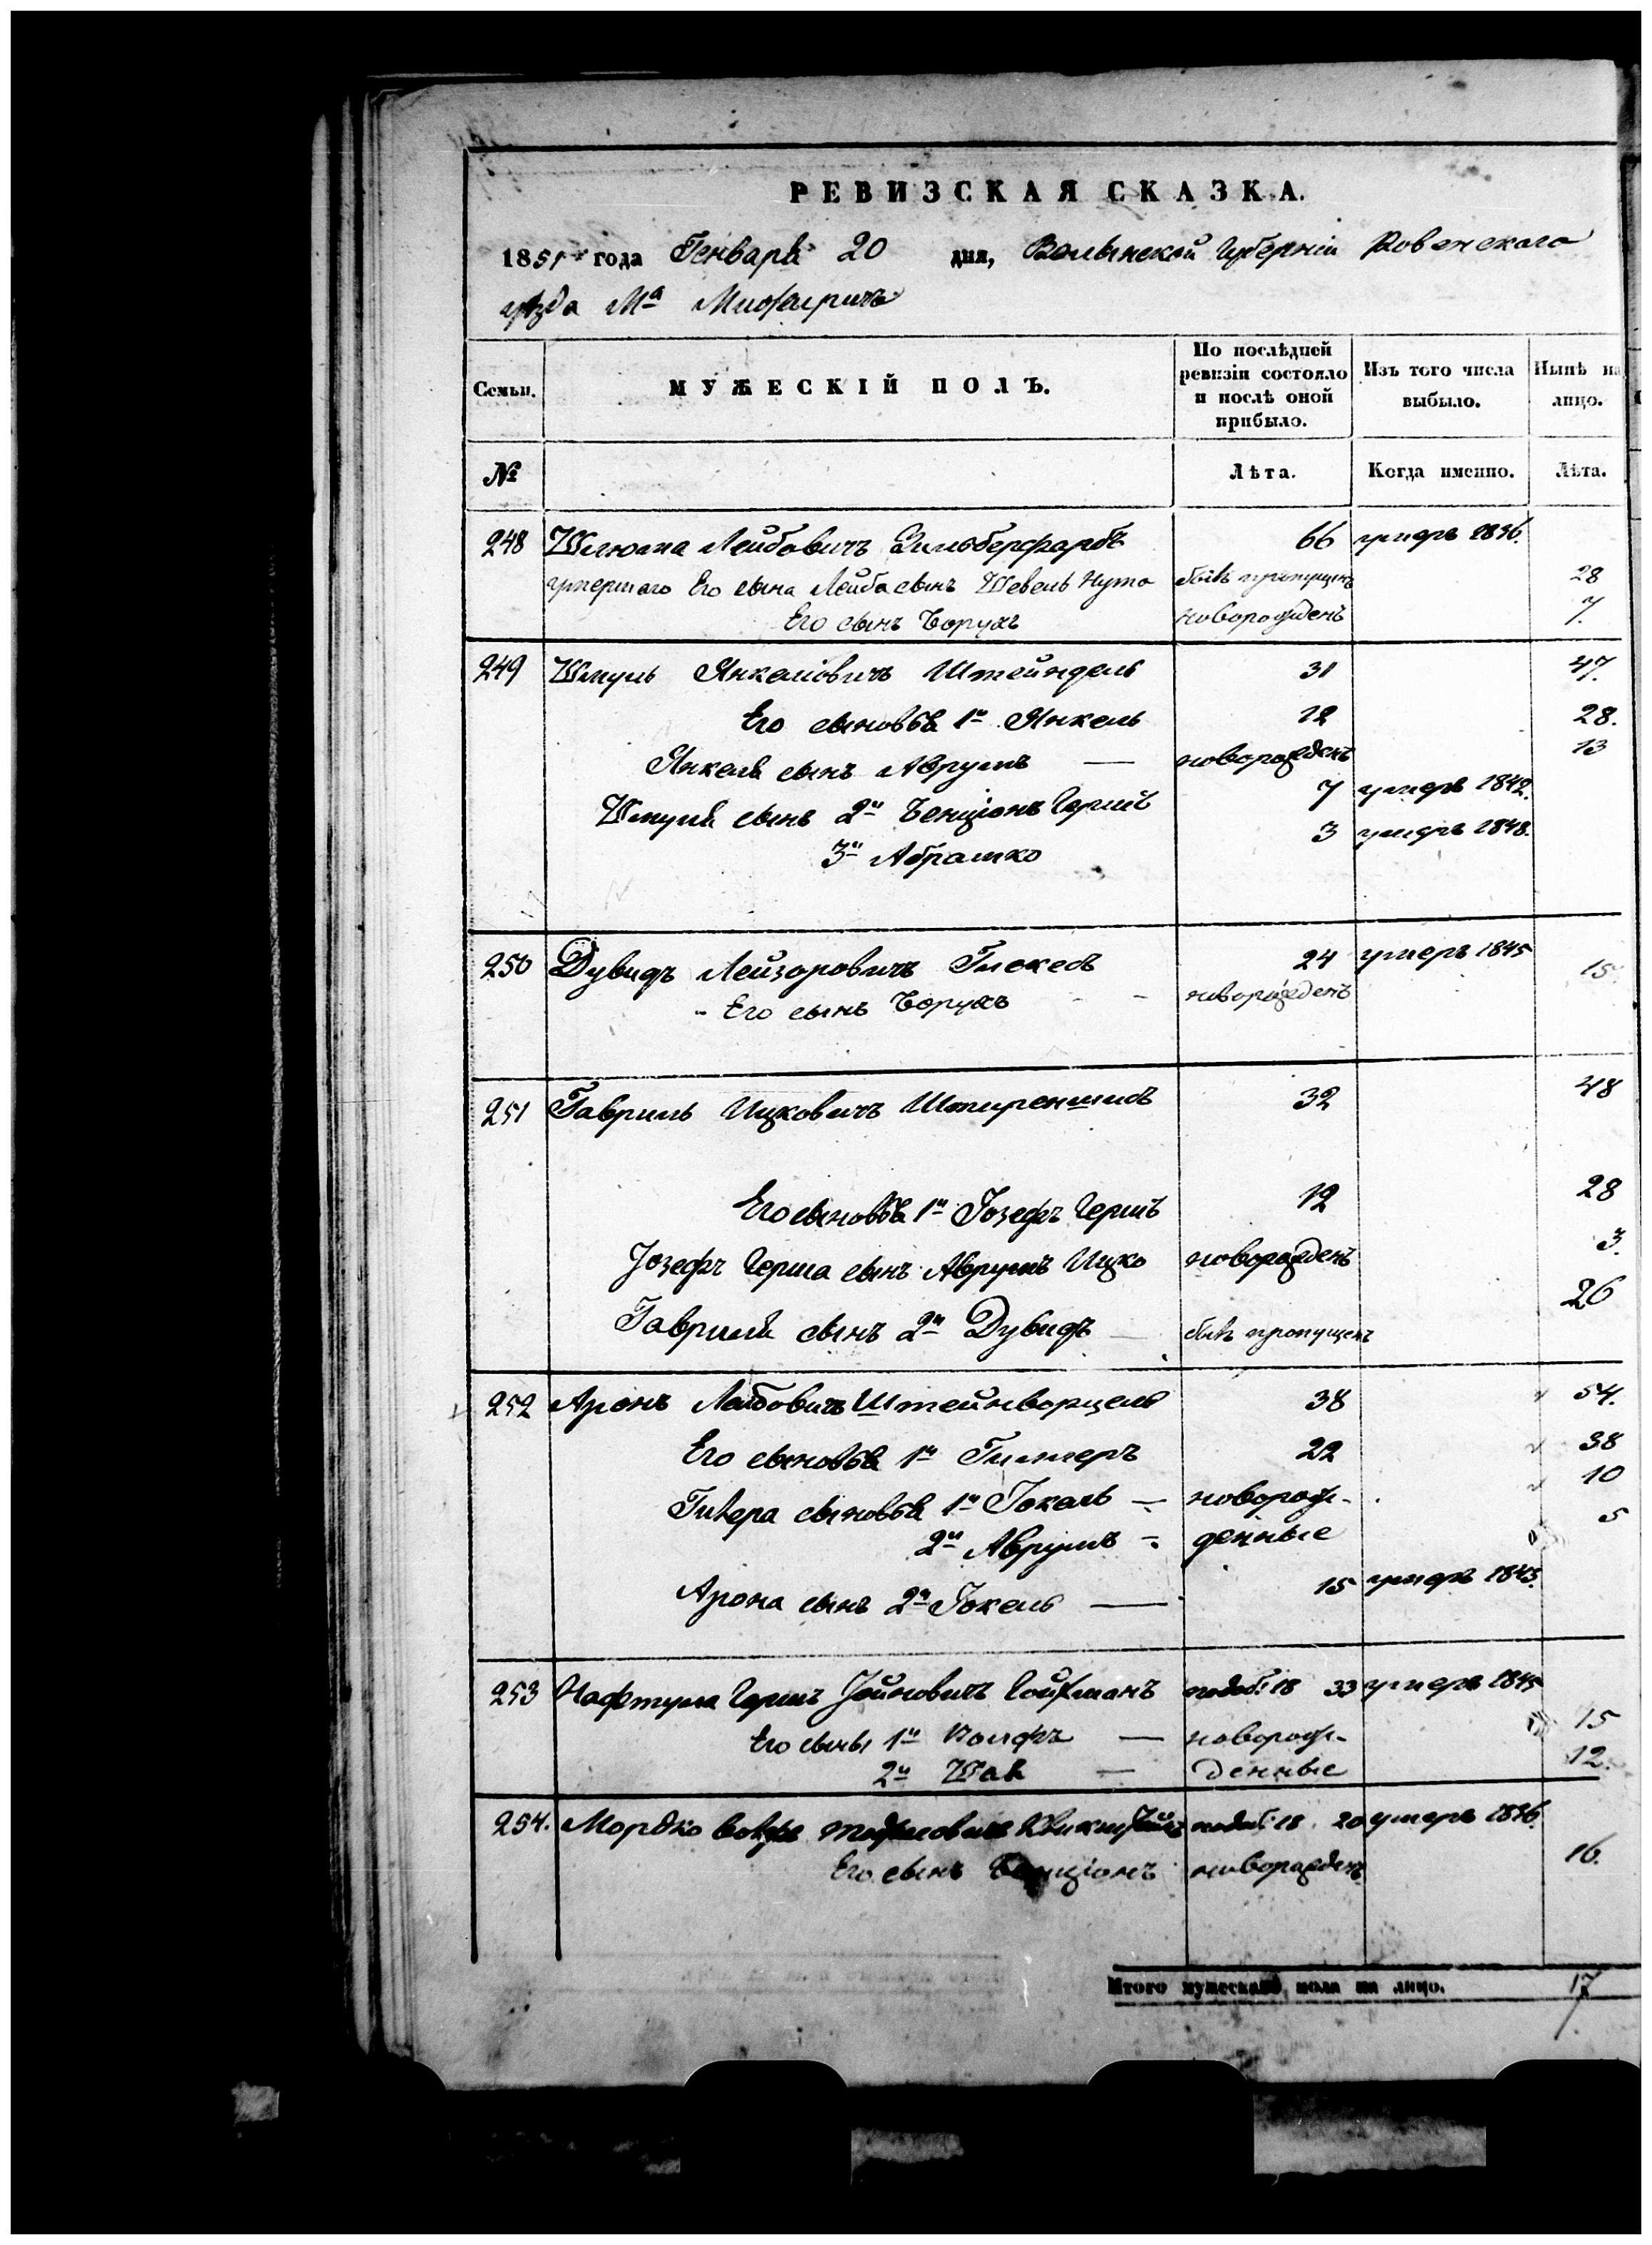 РЕВИЗСКАЯ СКАЗКА.
1851 года Генваря 20 дня, Волынской Губерніи Ровенского
уѣзда Мª
Семьи. МУЖЕСКІЙ ПОЛЪ. По послѣдней ревизіи состояло и послѣ оной прибыло. Изъ того числа выбыло. Нынѣ на лицо.
№ Лѣта. Когда именно. Лѣта.
248 Шлюма Лейбовичъ Зильберфарбъ 66 умеръ 1836.
умершаго Его сына Лейба сынъ Шевель Нута бывъ пропущенъ 28
Его сынъ Борухъ новорожденъ 7.
249 Шмуль Янкелiовичъ Штейндель 31 47.
Его сыновья 1й Янкель 12 28.
Янкеля сынъ Аврумъ — новорожденъ 13
Шмуля сынъ 2й Бенціонъ Гершъ 7 умеръ 1842.
3й Абрашко 3 умеръ 1848.
250 Дувидъ Лейзоровичъ 24 умеръ 1845
Его сынъ Борухъ новорожденъ 15
251 Гавриль Ицковичъ 32 48
Его сыновья 1й Іозефъ Гершъ 12 28
Іозефъ Герша сынъ Аврумъ Ицко новорожденъ 3.
Гавриля сынъ 2й Дувидъ бывъ пропущенъ 26
252 Аронъ Лейбовичъ Штейнворцель 38 54.
Его сыновья 1й 22 38
сыновья 1й Іокель — новорож- 10
2й Аврумъ денные 5
Арона сынъ 2й Іокель — 15 умеръ 1843.
253 Нафтула Гершъ Койфманъ 18 33 умеръ 1845
Его сыны 1й — новорож- 15
2й Шая — денные 12.
254. Мордко 18 20 умеръ 1836.
Его сынъ Бенціонъ новорожденъ 16.
Итого мужескаго пола на лицо. 17